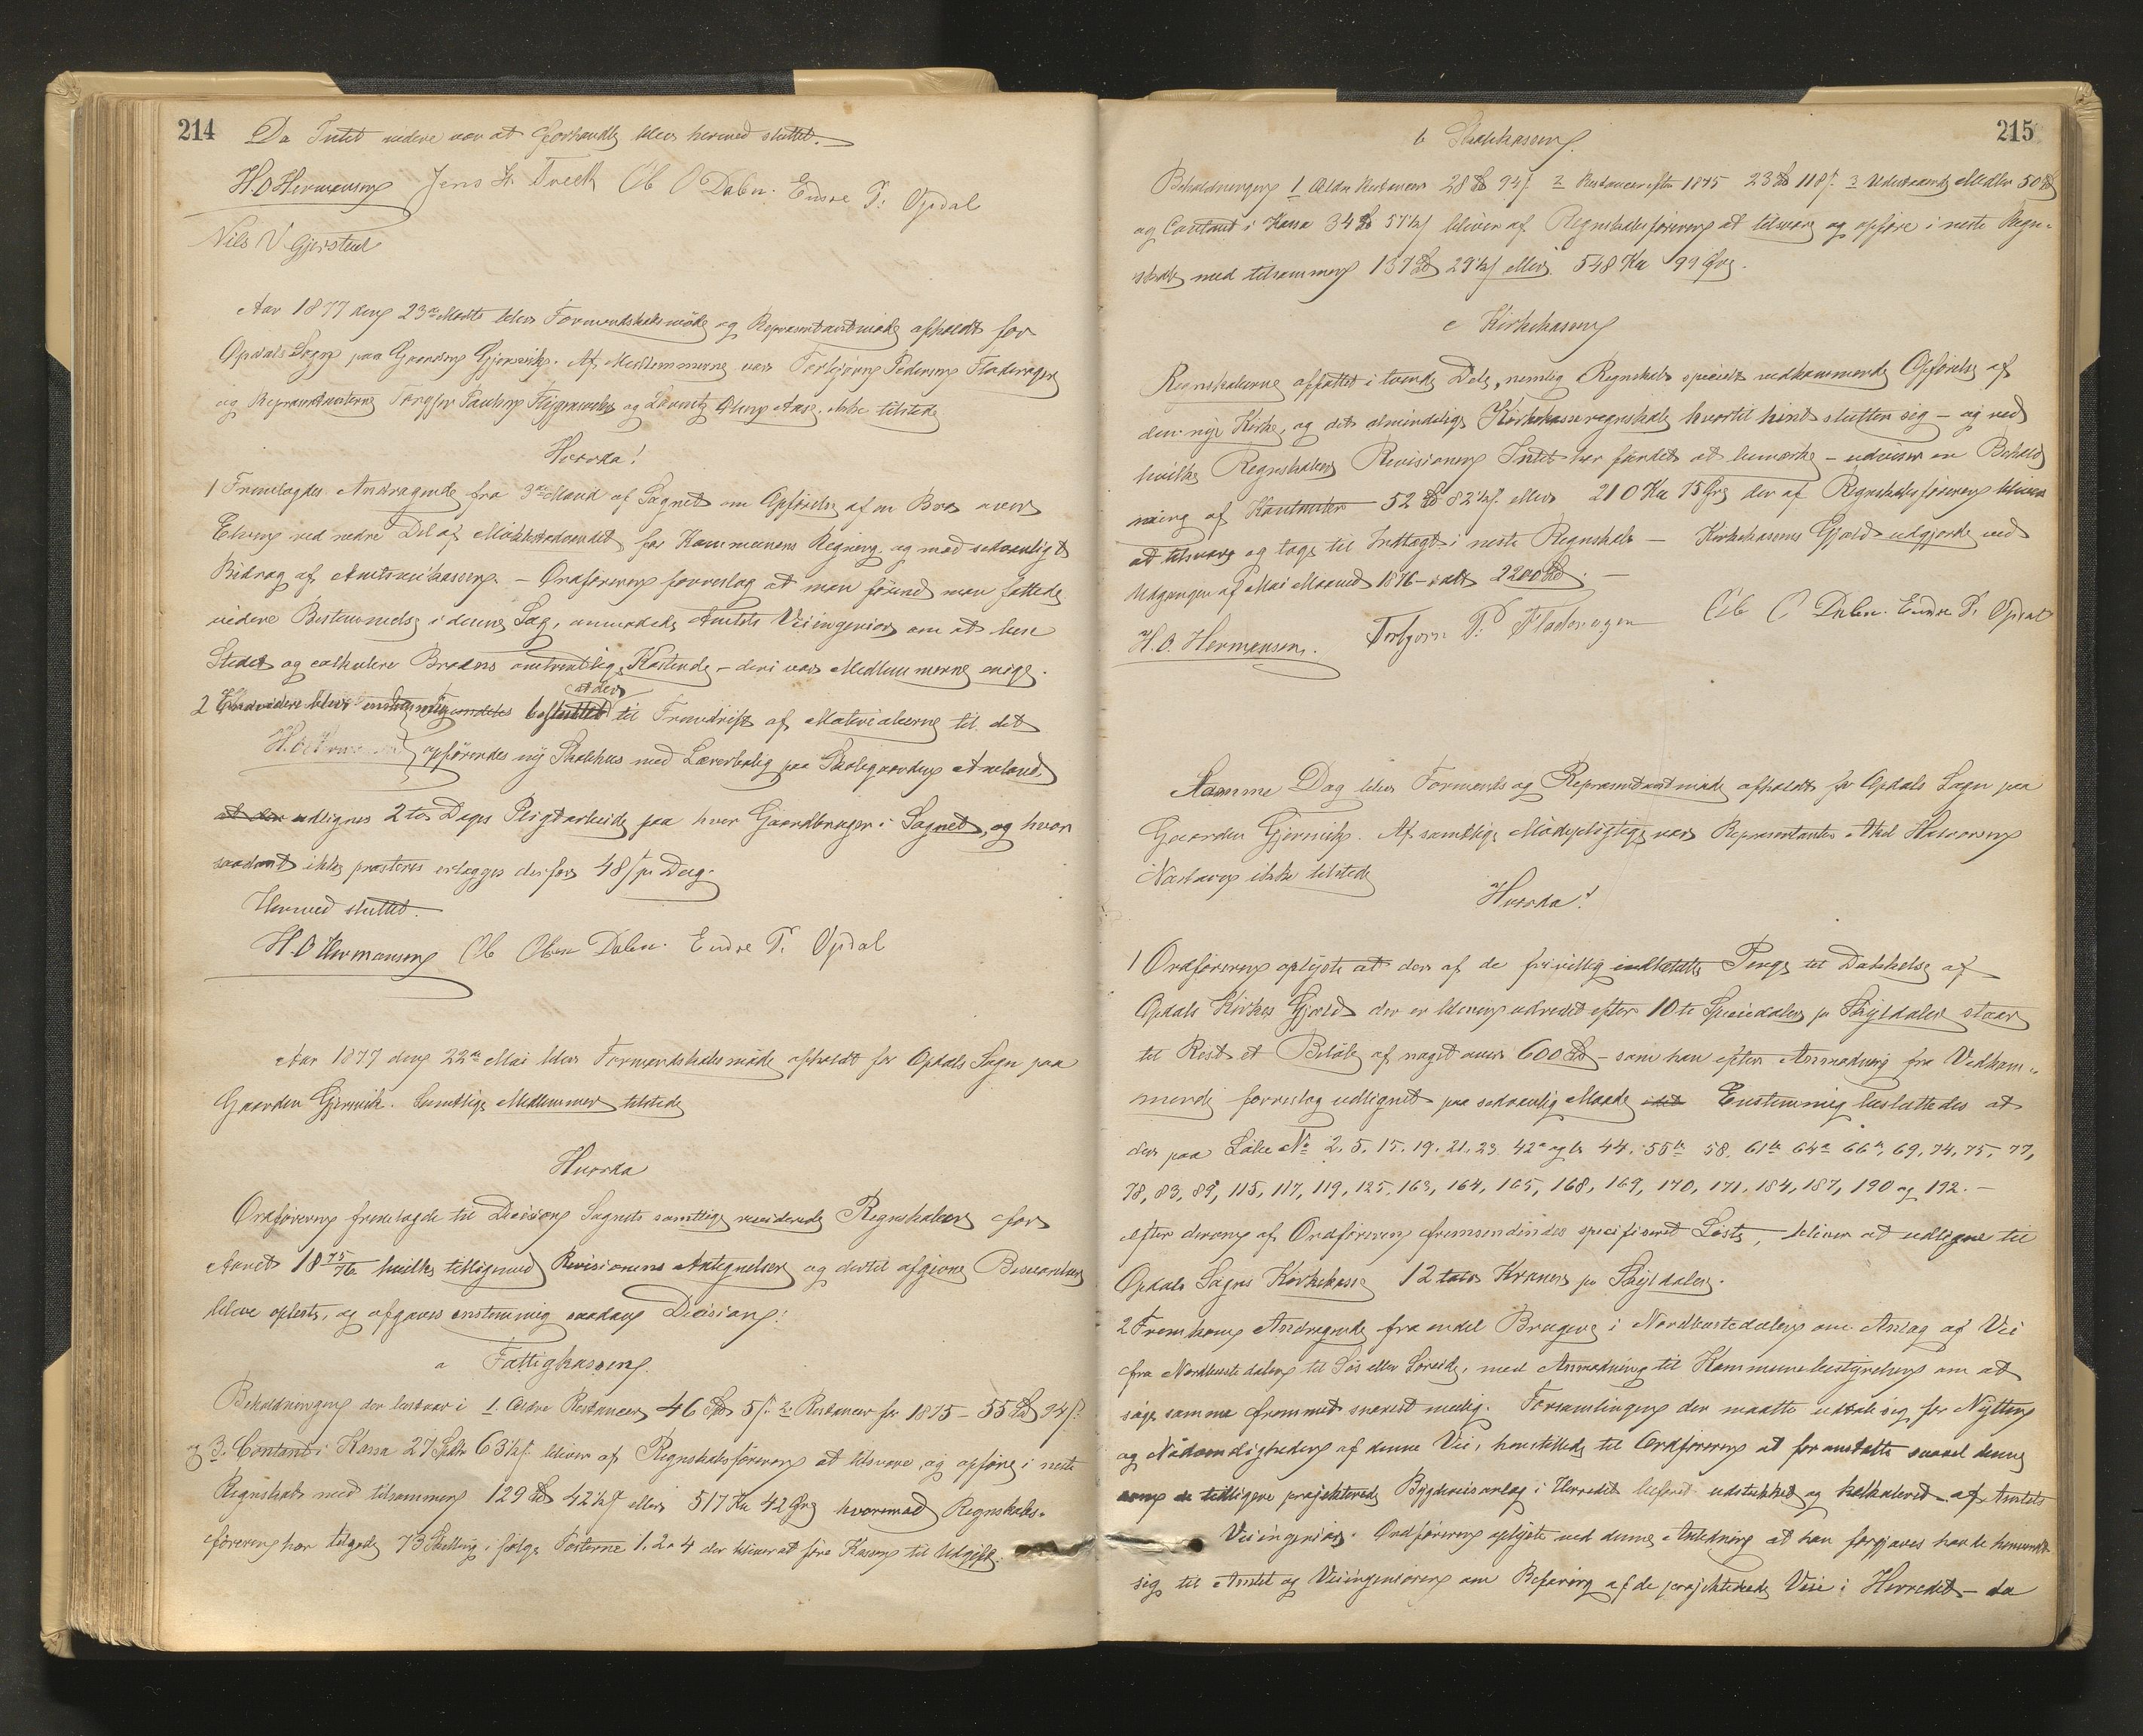 214
Da Intet videre var at Forhandle blev hermed sluttet.
H. O Hermansen Jens H. Tveit Ole O Dalen. Endre P. Opdal
Nils N Gjerstad
Aar 1877 den 23de Marts blev Formandskabsmöde og Repræsentantmöde afholdt for
Opdals Sogn paa Gaarden Gjersvik. Af Medlemmerne var Torbjörn Pedersen Fladeragen
og Repræsentanterne og ikke tilstede
Hvorda!
1 Fremlagdes Andragende fra 3de Mænd af Sognet om Opförelse af en Bro over
Elven ved nedre Del af for Kommunens Regning og med sedvanligt
Bidrag af Amtsveikassen. – Ordföreren forreslog at man förend man fattede
videre Bestemmelse i denne Sag, anmodede Amtets Veiingeniør om at bese
Stedet og calkulere Broens omtrentlige Kostende – deri var Medlemmerne enige.
2 Endvidere blev enstemmig besluttet at der til Fremdrift af Materialierne til det
H. O Hermansen opförendes ny Skolehus med Lærerbolig paa Skolegaarden Ameland
at der udlignes 2 to Dages Pligtarbeide paa hver Gaardbruger i Sognet, og hvor
saadant ikke præsteres erlægges derfor 48 s pr Dag.
Hermed sluttet.
H. O Hermansen Ole Olsen Dalen. Endre P. Opdal
Aar 1877 den 22de Mai blev Formandskabsmöde afholdt for Opdals Sogn paa
Gaarden Gjersvik. Samtlige Medlemmer tilstede
Hvorda
Ordföreren fremlagde til Decision Sognets samtlige reviderede Regnskaber for
Aaret 1875/76 hvilke tilligemed Revisionens Antegnelser og dertil afgivne Besvarelser
bleve oplæste, og afgaves enstemmig saadan Decision:
a Fattigkassen.
Beholdningen der bestaar i 1. Ældre Restancer 46 Spd 5 s. 2 Restancer for 1875 – 55 Spd 94 s.
og 3. Contant i Kassa 27 Spdlr 63½ s. bliver af Regnskabsföreren at tilsvare og opföre i neste
Regnskab med tilsammen 129 Spd 42½ s eller 517 Kr 42 Öre hvoremod Regnskabs-
föreren har tilgode 73 Skilling i fölge Posterne 1, 2 og 4 der bliver at före Kassen til Udgift.
215
b Skolekassen.
Beholdningen 1 Ældre Restancer 28 Spd 94 s. 2 Restancer efter 1875 23 Spd 118 s. 3 Udestaaende Midler 50 Spd
og Contant i Kassa 34 Spd 57½ s bliver af Regnskabsföreren at tilsvare og opföre i neste Regn-
skab med tilsammen 137 Spd 29½ s eller 548 Kr 99 Öre.
c Kirkekassen
Regnskaberne affattet i tvende Dele, nemlig Regnskab specielt vedkommende Opförelse af
den nye Kirke, og det almindelige Kirkekasseregnskab hvortil hint slutter sig – og ved
hvilke Regnskaber Revisionen Intet har fundet at bemærke – udviser en Behold
ning af Kontanter 52 Spd 82½ s. eller 210 Kr 75 Öre der af Regnskabsföreren bliver
at tilsvare og tage til Indtægt i neste Regnskab – Kirkekassens Gjæld udgjorde ved
Udgangen af Mai Maaned 1876 – ialt 2200 Spd. –
H. O. Hermansen. Torbjørn P. Fladeragen Ole O Dalen. Endre P. Opdal
Samme Dag blev Formands og Repræsentantmöde afholdt for Opdals Sogn paa
Gaarden Gjersvik. Af samtlige Mödepligtige var Repræsentanten Halvorsen
ikke tilstede
Hvorda!
1 Ordföreren oplyste at der af de frivillig indbetalte Penge til Dækkelse af
Opdals Kirkes Gjæld der er bleven udredet efter 10 ti Speciedaler pr Skyldaler staar
til Rest et Belöb af noget over 600 Spd – som han efter Anmodning fra Vedkom-
mende forreslog udlignet paa sedvanlig Maade Enstemmig besluttedes at
der paa Löbe No 2, 5, 15, 19, 21, 23 42a og b 44. 55b 58. 61b 64a 66a, 69, 74, 75, 77,
78, 83, 89, 115, 117, 119, 125, 163, 164, 165, 168, 169, 170, 171, 184, 187, 190 og 192. –
efter deraf af Ordföreren fremsendendes specifiseret Liste, – bliver at udligne til
Opdals Sogns Kirkekasse 12 tolv Kroner pr Skyldaler.
2 Fremkom Andragende fra endel Brugere i Nordbustedalen om Anlæg af Vei
fra Nordbustedalen til Sös eller Söreide, med Anmodning til Kommunebestyrelsen om at
söge samme fremmet snarest mulig. Forsamlingen der maatte udtale sig for Nytten
og Nödvendigheden af denne Vei, henstillede til Ordföreren at foranstalte saavel denne
som de tidligere projekterede Bygdeveianlæg i Herredet befaret udstukket og kalkuleret af Amtets
Veiingeniör. Ordföreren oplyste ved denne Anledning at han forgjæves havde henvendt
sig til Amtet og Veiingeniören om Befaring af de projekterede Veie i Herredet – da